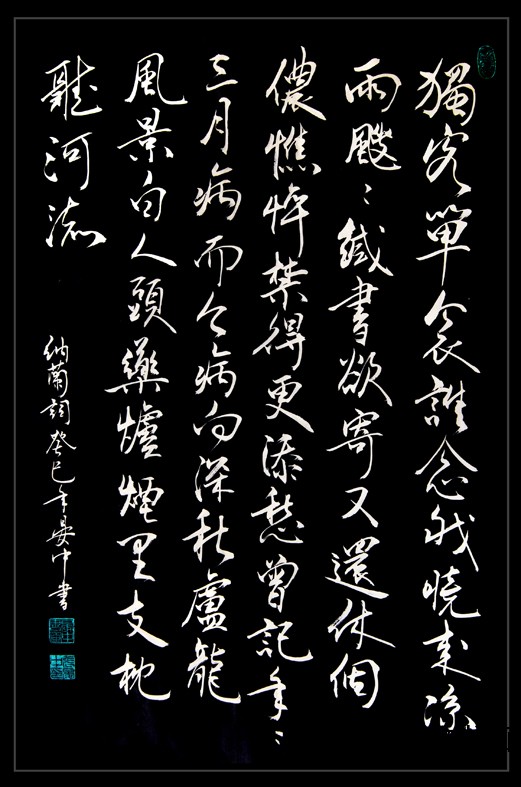 獨客單衾誰念我曉來涼
雨颼〻緘書欲寄又還休個
儂憔悴禁得更添愁曾記年〻
三月病而今病向深秋盧龍
風景白人頭藥爐煙里支枕
聽河流
納蘭詞癸巳年晏中書